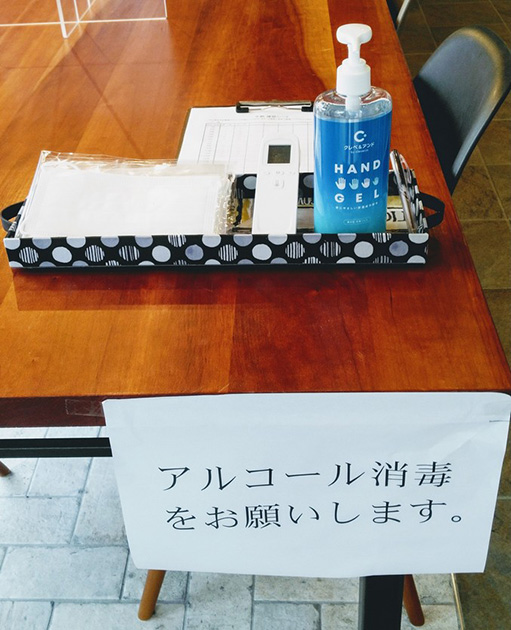 クレベ&アンド
HAND
GEL
アルコール消毒
をお願いします。